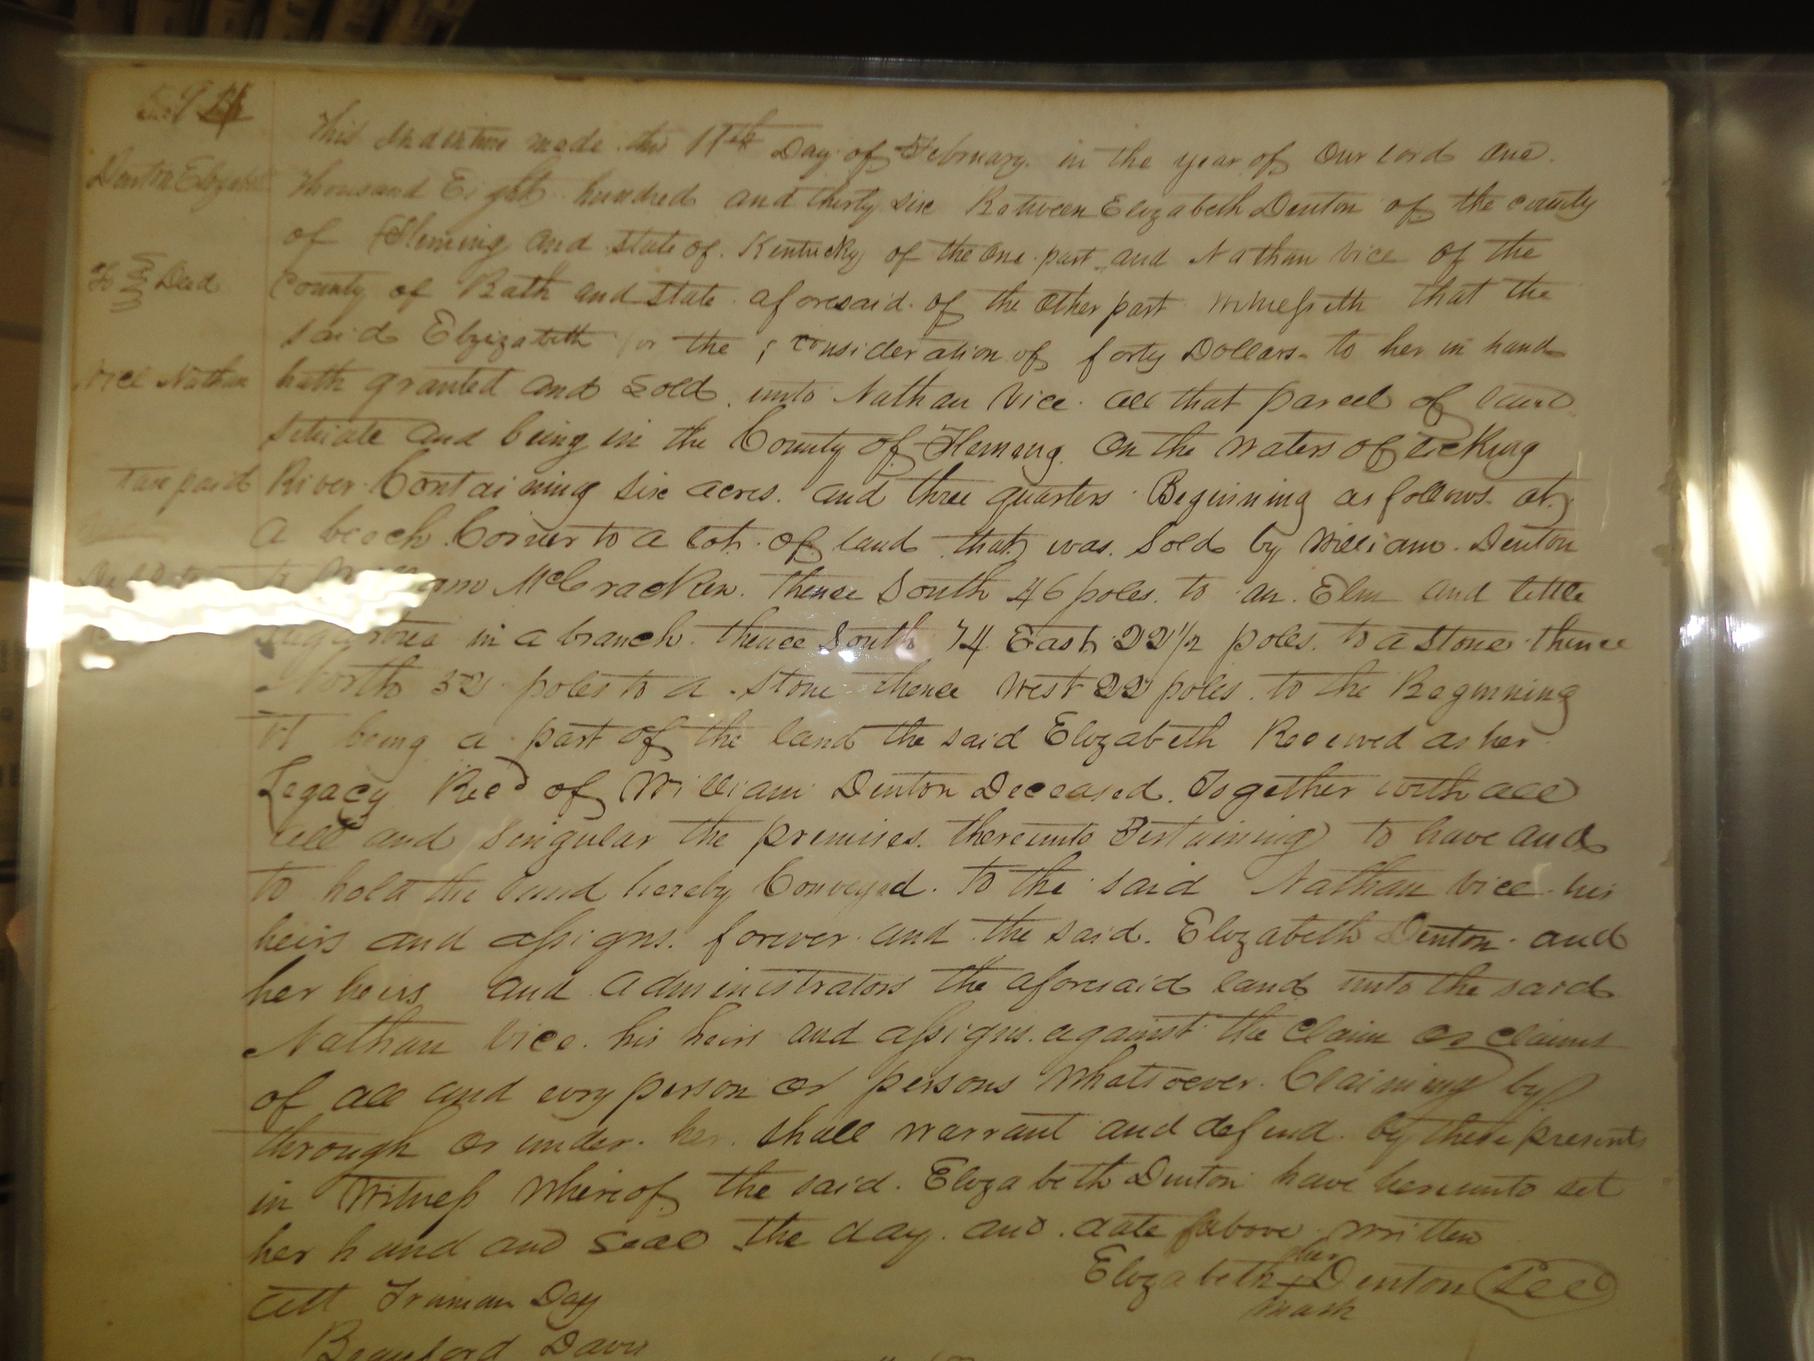 Denton Elizabeth
To Deed
Vice Nathan
Tax paid
This Indenture made this 17th Day of February in the year of Our Lord One
Thousand Eight hundred and thirty six Between Elizabeth Denton of the county
of Fleming and state of Kentucky of the one part and Nathan Vice of the
County of Bath and state aforesaid of the other part Witnesseth that the
said Elzizabeth for the consideration of forty Dollars to her in hand
hath granted and Sold unto Nathan Vice all that parcel of land
situate and being in the County of Fleming On the waters of Licking
River Containing six acres and three quarters Beginning as follows at
a beech Corner to a Lot of land that was Sold by William Denton
to William McCracken. thence South 46 poles to an Elm and little
sugartree in a branch thence South 74 East 22 1/2 poles to a stone thence
North 52 poles to a stone thence West 22 poles to the Beginning
it being a part of the land the said Elizabeth Received as her
Legacy Recd of William Denton Deceased. Together with all
all and singular the premises thereunto Pertaining to have and
to hold the land hereby Conveyed to the said Nathan Vice his
heirs and assigns forever and the said Elizabeth Denton and
her heirs and administrators the aforesaid land unto the said
Nathan Vice his heirs and assigns against the claim or claims
of all and evry person or persons whatsoever Claiming by
through or under her shall warrant and defend by these presents
in Witness Whereof the said Elizabeth Denton have hereunto set
her hand and seal the day and date above written
Elizabeth her + mark Denton Seal
Att Truman Day
Beauford Davis